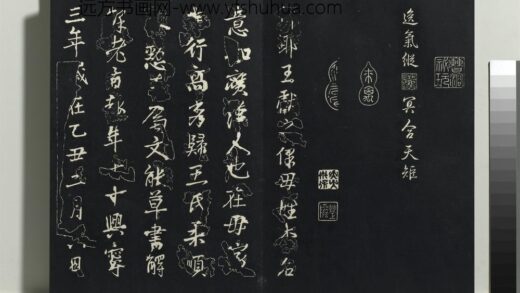 远方书画网-www.yishuhua.com
逸氣縱 冥合天矩
耶王獻之保母姓李名
意如廣漢人也在母家
志行高秀歸王氏柔順
恭懃善屬文能草書解
釋老旨趣年七十興寧
三年歲在乙丑二月六日